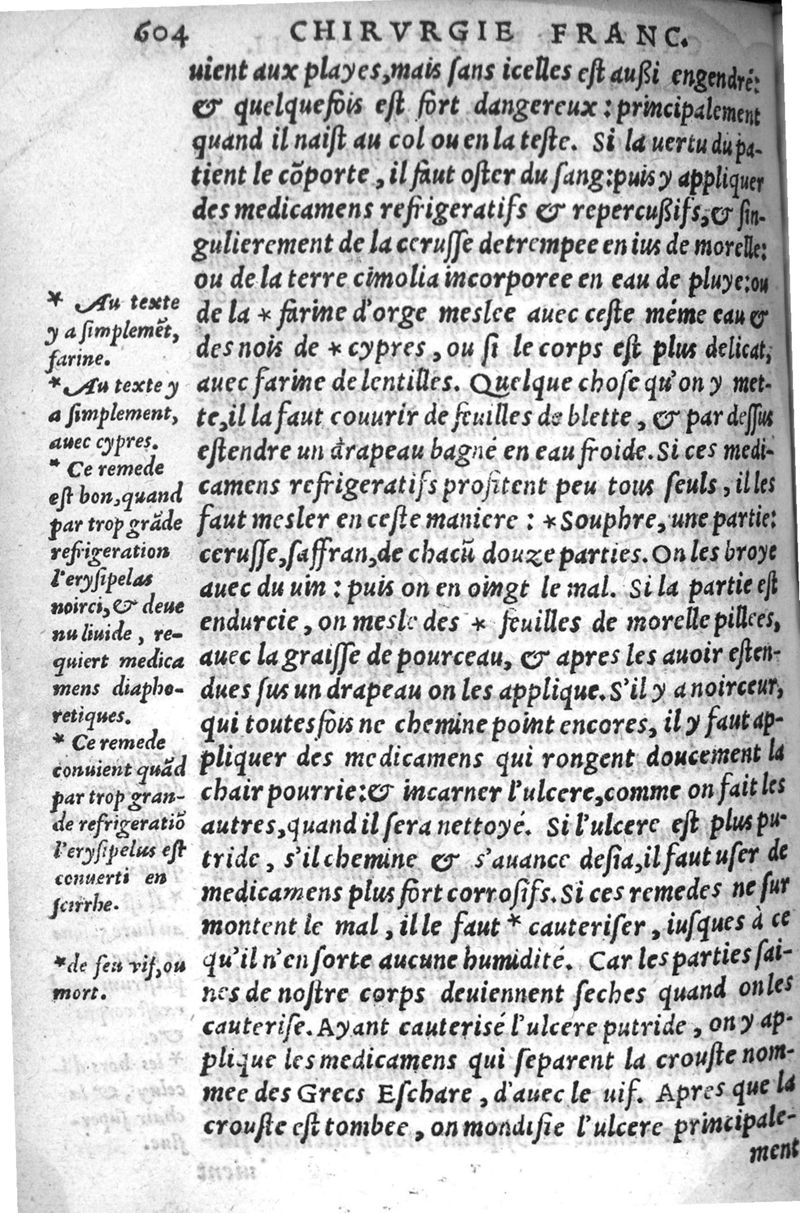 604 CHIRVRGIE FRANC.
uient aux playes, mais sans icelles est außi engendré:
& quelquefois est fort dangereux : principalement
quand il naist au col ou en la teste. Si la uertu du pa-
tient le cõporte, il faut oster du sang: puis y appliquer
des medicamens refrigeratifs & repercußifs, & sin-
gulierement de la cerusse detrempee en ius de morelle:
ou de la terre cimolia incorporee en eau de pluye: ou
de la * farine d'orge meslee auec ceste méme eau &
des nois de * cypres, ou si le corps est plus delicat,
auec farine de lentilles. Quelque chose qu'on y met-
te, il la faut couurir de feuilles de blette, & par dessus
estendre un drapeau bagné en eau froide. Si ces medi-
camens refrigeratifs profitent peu tous seuls, il les
faut mesler en ceste maniere : * Souphre, une partie:
cerusse, saffran, de chacũ douze parties. On les broye
auec du uin : puis on en oingt le mal. Si la partie est
endurcie, on mesle des * feuilles de morelle pillees,
auec la graisse de pourceau, & apres les auoir esten-
dues sus un drapeau on les applique. S'il y a noirceur,
qui toutesfois ne chemine point encores, il y faut ap-
pliquer des medicamens qui rongent doucement la
chair pourrie: & incarner l'ulcere, comme on fait les
autres, quand il sera nettoyé. Si l'ulcere est plus pu-
tride, s'il chemine & s'auance desia, il faut user de
medicamens plus fort corrosifs. Si ces remedes ne sur
montent le mal, il le faut * cauteriser, iusques à ce
qu'il n'en sorte aucune humidité. Car les parties sai-
nes de nostre corps deuiennent seches quand on les
cauterise. Ayant cauterisé l'ulcere putride, on y ap-
plique les medicamens qui separent la crouste nom-
mee des Grecs Eschare, d'auec le uif. Apres que la
crouste est tombee, on mondifie l'ulcere principale-
ment
* Au texte
y a simplemẽt,
farine.
* Au texte y
a simplement,
auec cypres.
* Ce remede
est bon, quand
par trop grãde
refrigeration
l'erysipelas
noirci, & deue
nu liuide, re-
quiert medica
mens diapho-
retiques.
* Ce remede
conuient quãd
par trop gran-
de refrigeratiõ
l'erysipelus est
conuerti en
scirrhe.
* de feu vif, ou
mort.